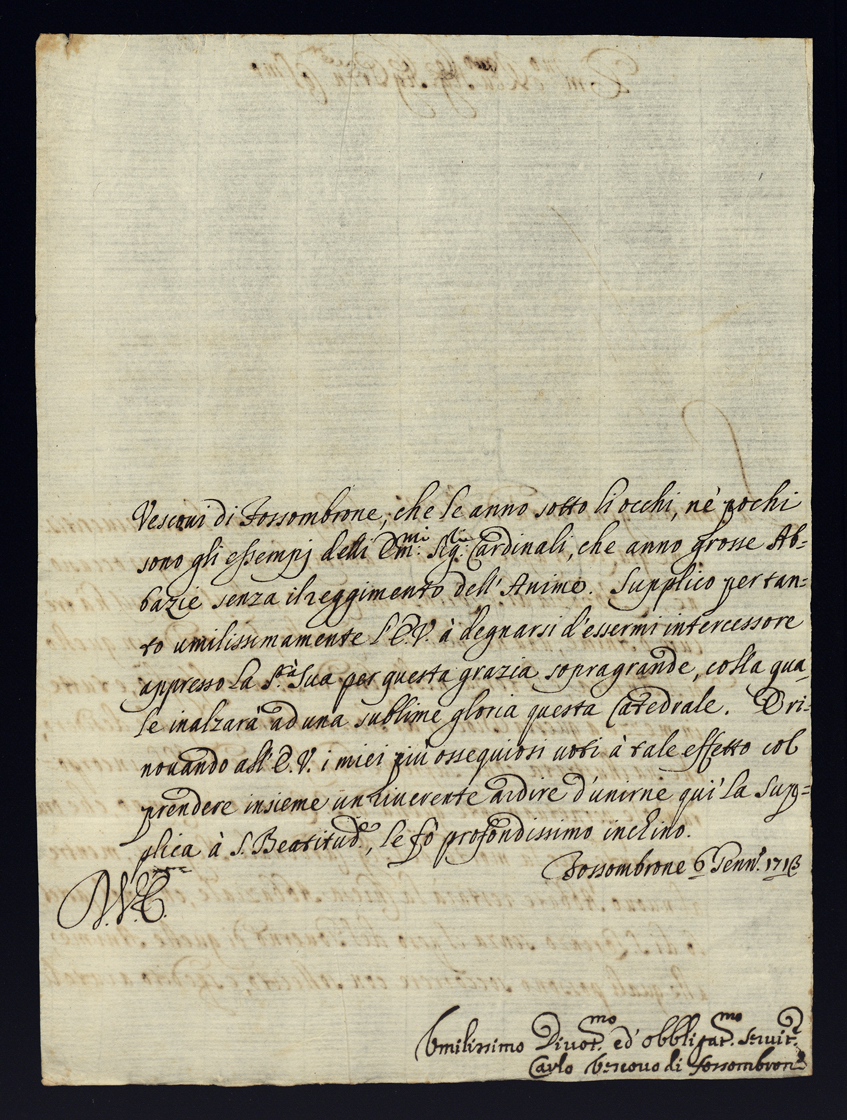 Vescovi di Fossombrone, che le anno sotto li occhi, nè pochi
sono gli essempj delli Em.mi Sig.ri Cardinali, che anno grosse Ab=
bazie senza il reggimento dell'Anime. Supplico pertan=
to umilissimamente l'E.V. à degnarsi d'essermi intercessore
appresso la S.tà Sua per questa grazia sopragrande, colla qua=
le inalzarà ad una sublime gloria questa Catedrale. E ri=
novando all'E.V. i miei più ossequiosi voti à tale effetto col
prendere insieme un riverente ardire d'unirne qui la sup=
plica à S. Beatitud.e, le fò profondissimo inchino.
Fossombrone 6 Genn.o 1713
Umilissimo Divot.mo ed obbligat.mo Servit.e
Carlo Vescovo di Fossombrone